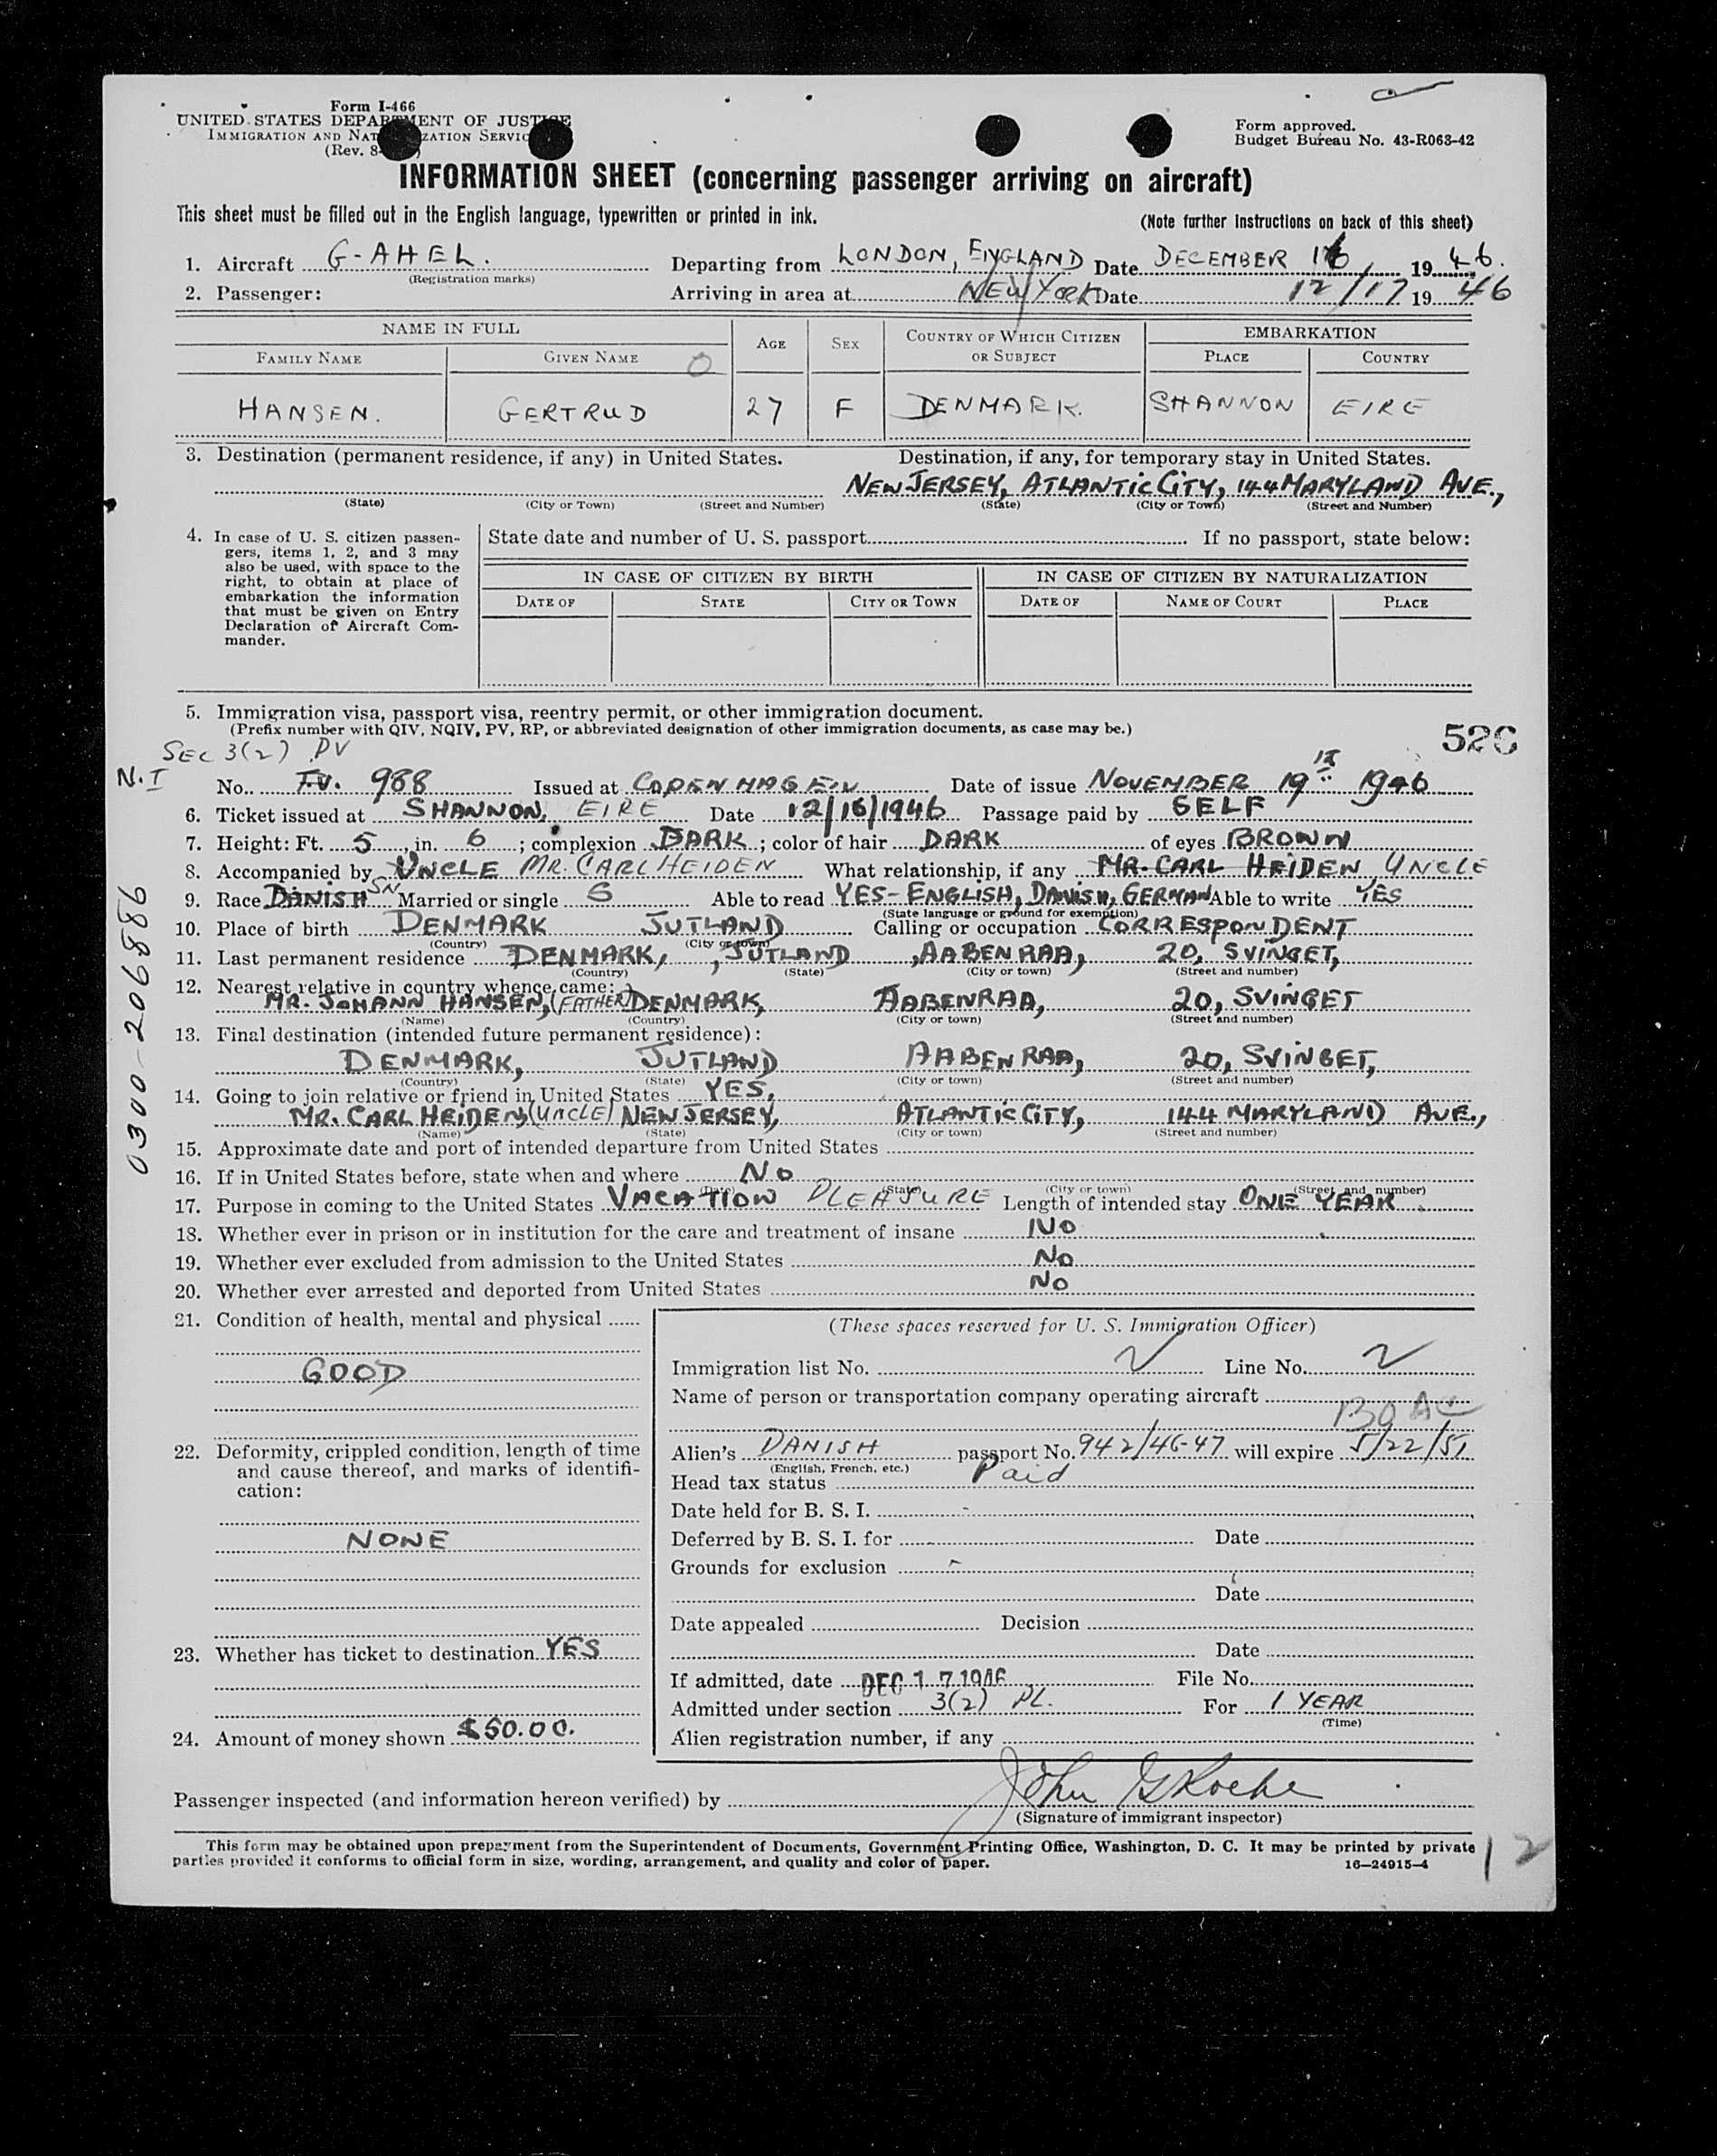 Form I-466
UNITED STATES DEPARTMENT OF JUSTICE
IMMIGRATION AND NATURALIZATION SERVICE
(Rev. 8-
Form approved.
Budget Bureau No. 43-R063-42
INFORMATION SHEET (concerning passenger arriving on aircraft)
This sheet must be filled out in the English language, typewritten or printed in ink.
(Note further instructions on back of this sheet)
1. Aircraft G-AHEL. Departing from LONDON, ENGLAND Date DECEMBER 16 1946.
(Registration marks)
2. Passenger: Arriving in area at NEW YORK Date 12/17 1946
NAME IN FULL AGE SEX COUNTRY OF WHICH CITIZEN OR SUBJECT EMBARKATION
FAMILY NAME GIVEN NAME PLACE COUNTRY
HANSEN. GERTRUD 27 F DENMARK. SHANNON EIRE
3. Destination (permanent residence, if any) in United States. Destination, if any, for temporary stay in United States.
NEW JERSEY, ATLANTIC CITY, 144 MARYLAND AVE.,
(State) (City or Town) (Street and Number) (State) (City or Town) (Street and Number)
4. In case of U. S. citizen passen-
gers, items 1, 2, and 3 may
also be used, with space to the
right, to obtain at place of
embarkation the information
that must be given on Entry
Declaration of Aircraft Com-
mander.
State date and number of U. S. passport If no passport, state below:
IN CASE OF CITIZEN BY BIRTH IN CASE OF CITIZEN BY NATURALIZATION
DATE OF STATE CITY OR TOWN DATE OF NAME OF COURT PLACE
5. Immigration visa, passport visa, reentry permit, or other immigration document.
(Prefix number with QIV, NQIV, PV, RP, or abbreviated designation of other immigration documents, as case may be.)
526
SEC 3(2) PV
N.I
No. T.V. 988 Issued at COPENHAGEN Date of issue NOVEMBER 19 1946
6. Ticket issued at SHANNON, EIRE Date 12/16/1946 Passage paid by SELF
7. Height: Ft. 5, in. 6; complexion DARK; color of hair DARK of eyes BROWN
8. Accompanied by UNCLE MR. CARL HEIDEN What relationship, if any MR. CARL HEIDEN UNCLE
9. Race DANISH SN Married or single S Able to read YES - ENGLISH, DANISH, GERMAN Able to write YES
(State language or ground for exemption)
10. Place of birth DENMARK JUTLAND Calling or occupation CORRESPONDENT
(Country) (City or town)
11. Last permanent residence DENMARK, , JUTLAND, AABENRAA, 20, SVINGET,
(Country) (State) (City or town) (Street and number)
12. Nearest relative in country whence came:
MR. JOHANN HANSEN, (FATHER) DENMARK, AABENRAA, 20, SVINGET
(Name) (Country) (City or town) (Street and number)
13. Final destination (intended future permanent residence):
DENMARK, JUTLAND AABENRAA, 20, SVINGET,
(Country) (State) (City or town) (Street and number)
14. Going to join relative or friend in United States YES,
MR. CARL HEIDEN, (UNCLE) NEW JERSEY, ATLANTIC CITY, 144 MARYLAND AVE.,
(Name) (State) (City or town) (Street and number)
15. Approximate date and port of intended departure from United States
16. If in United States before, state when and where NO
(Date) (State) (City or town) (Street and number)
17. Purpose in coming to the United States VACATION PLEASURE Length of intended stay ONE YEAR
18. Whether ever in prison or in institution for the care and treatment of insane NO
19. Whether ever excluded from admission to the United States NO
20. Whether ever arrested and deported from United States NO
0300-206886
21. Condition of health, mental and physical
GOOD
22. Deformity, crippled condition, length of time
and cause thereof, and marks of identifi-
cation:
NONE
23. Whether has ticket to destination YES
24. Amount of money shown $50.00.
(These spaces reserved for U. S. Immigration Officer)
Immigration list No. 2 Line No. 2
Name of person or transportation company operating aircraft
BOAC
Alien's DANISH passport No. 942/46-47 will expire 5/22/51
(English, French, etc.)
Head tax status Paid
Date held for B. S. I. -
Deferred by B. S. I. for Date
Grounds for exclusion -
Date
Date appealed Decision
Date
If admitted, date DEC 17 1946 File No.
Admitted under section 3(2) PL. For 1 YEAR
(Time)
Alien registration number, if any
Passenger inspected (and information hereon verified) by John G Roche
(Signature of immigrant inspector)
This form may be obtained upon prepayment from the Superintendent of Documents, Government Printing Office, Washington, D. C. It may be printed by private
parties provided it conforms to official form in size, wording, arrangement, and quality and color of paper. 16—24915-4
12